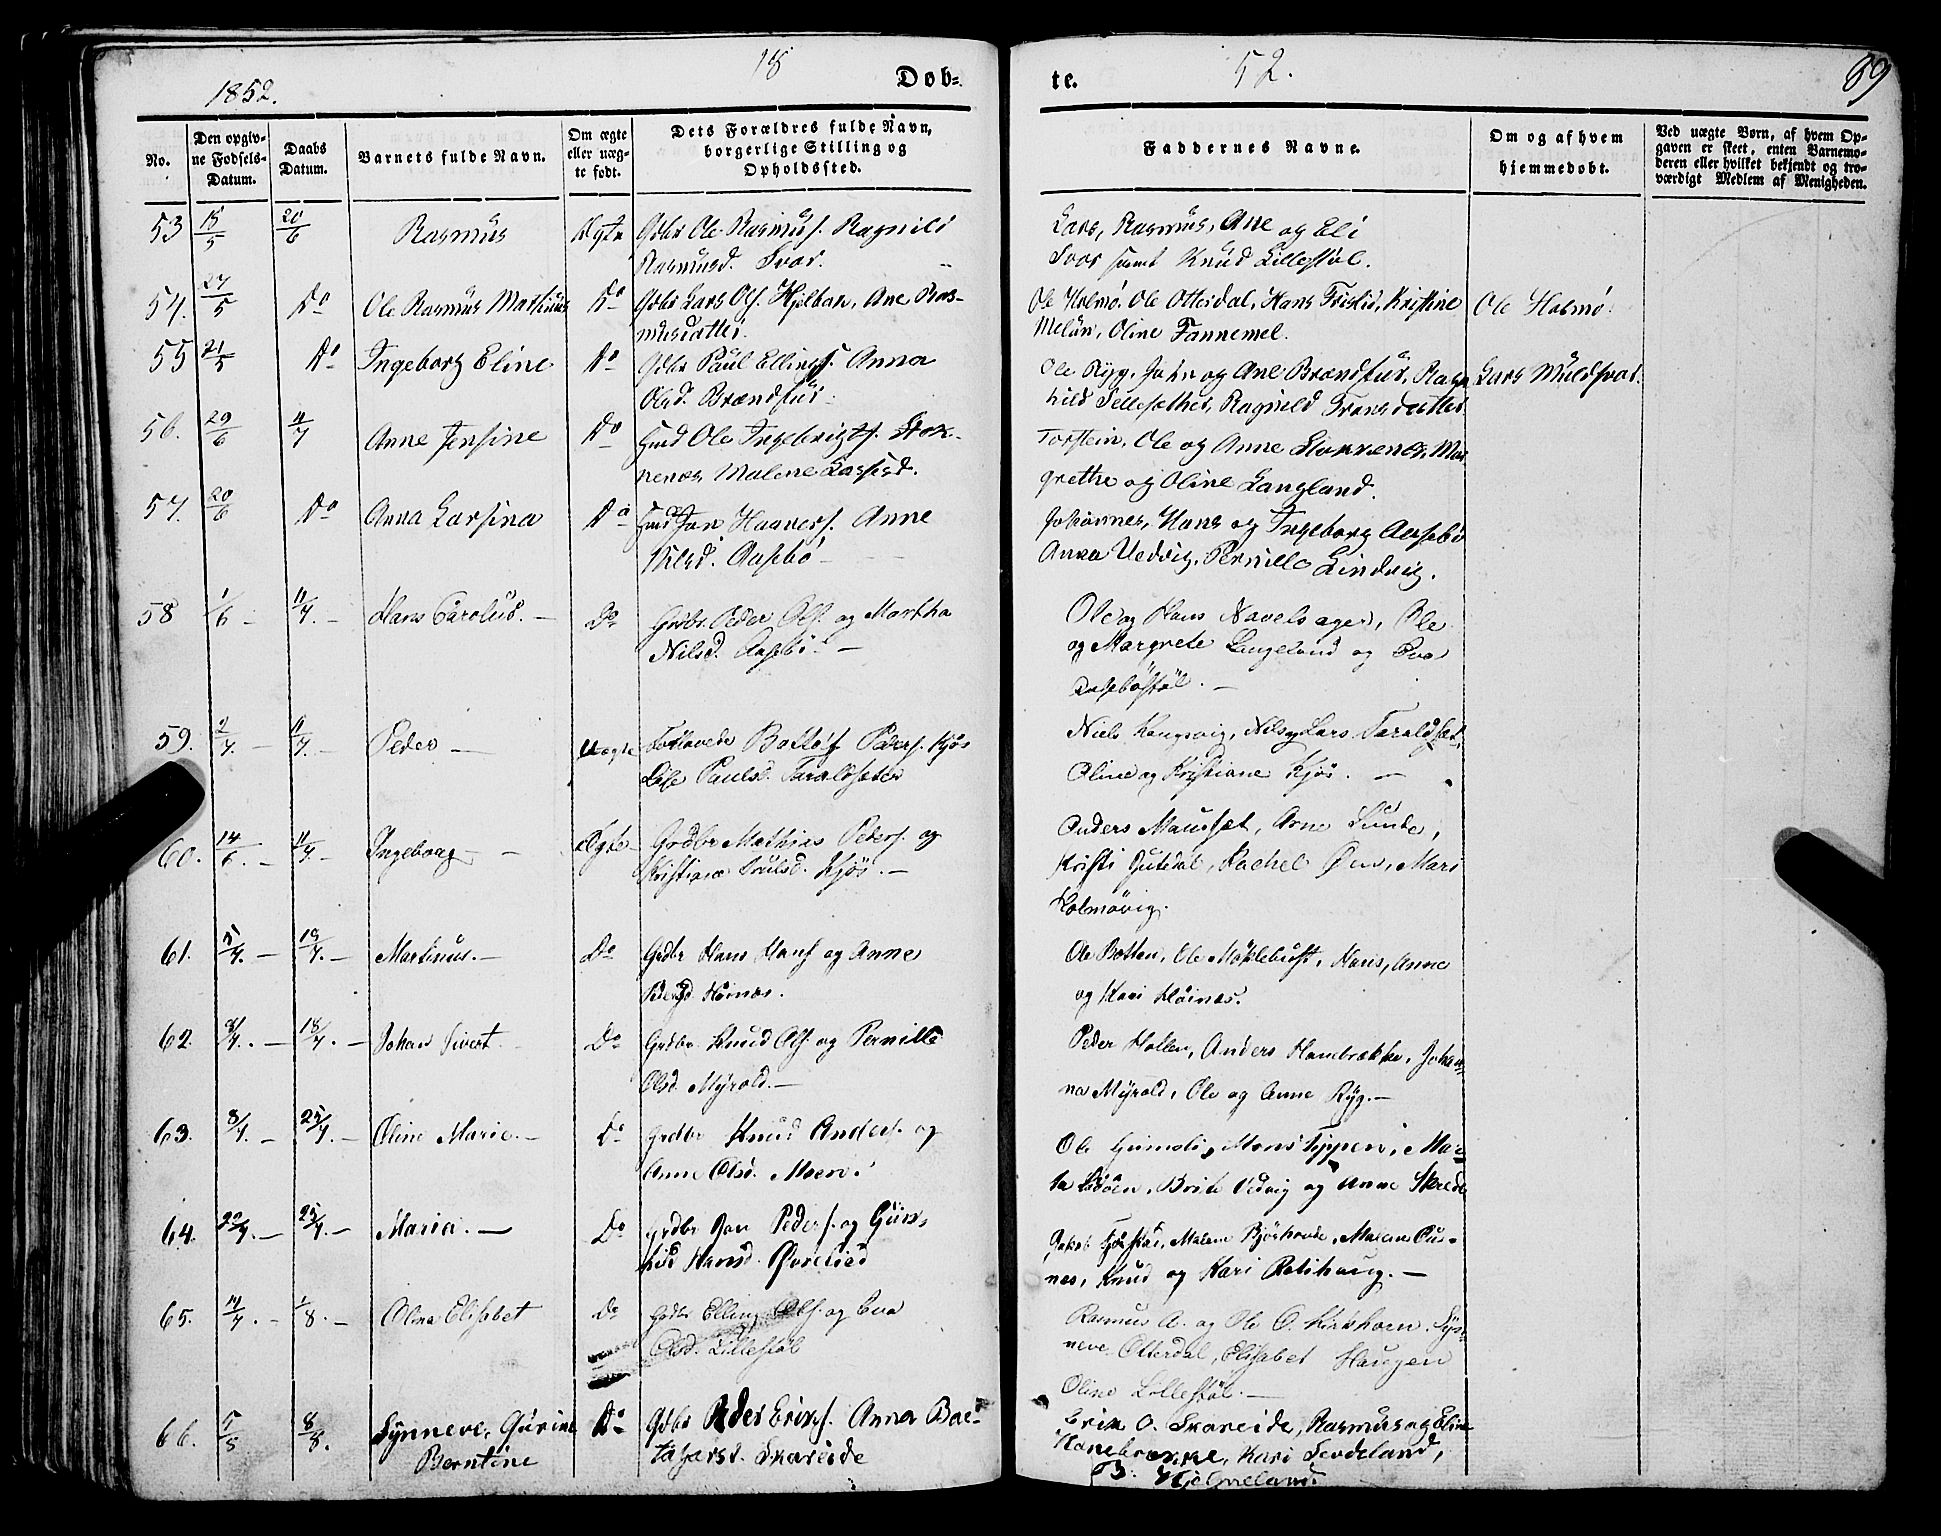 1852.
18
Døb-
te.
52.
89
No.
Den opgiv-
ne Fødsels-
Datum.
Daabs
Datum.
Barnets fulde Navn.
Om ægte
eller uæg-
te født.
Dets Forældres fulde Navn,
borgerlige Stilling og
Opholdssted.
Faddernes Navne.
Om og af hvem
hjemmedøbt.
Ved uægte Børn, af hvem Op-
gaven er skeet, enten Barnemo-
deren eller hvilket bekjendt og tro-
værdigt Medlem af Menigheden.
53 15/5 20/6 Rasmus Ægte Gdbr Ole Rasmus. Ragnild
Rasmusd. Svor.
Lars, Rasmus, Ane og Eli
Svor samt Knud Lillestøl.
54. 27/5 Do Ole Rasmus Martinus Do Gdbr Lars Ols. Hjelban, Ane Ras-
musdatter
Ole Holmø, Ole Otterdal, Hans Kristine
Melün, Oline Tannemel.
Ole Holmø.
55 21/5 Do Ingeborg Eline Do Gdbr Paul Ellings. Anna
Olsd. Brændhus.
Ole Ryg, John og Ane Brændhus, Ragn
hild Sellesæther, Ragnild Fransdatter
Lars Muldsvor.
56. 29/6 11/7 Anne Jensine Do Huusmd Ole Ingebrigts. Stok-
nenes, Malene Lassesd.
Torstein, Ole og Anne Stoknenes, Mar
grethe og Oline Langland.
57. 20/6 Do Anna Larsina Do Huusmd Jon Anne
Nilsd. Aasebø
Johannes, Hans og Ingeborg Aasebø
Anna Vedvig, Pernille Lindvig.
58 1/6 - 11/7. - Hans Carolus. - Do Grdbr. Peder Ols. og Martha
Nilsd. Aasebø. -
Ole og Hans Navelsager, Ole
og Margrete Langeland og Eva
Aasebøstøl. -
59. 2/7. - 11/7. - Peder - Uægte Forlovede Bottolf Peders. Kjøs
Lise Paulsd. Taraldsæter
Niels Kongsvig, Nils og Lars Taraldsæt,
Oline og Kristiane Kjøs. -
60. 14/6. - 11/7. - Ingeborg - - Ægte - Grdbr Mathias Peders. og
Kristiane Kjøs. -
Anders Maurset, Arne Lunde,
Kristi Rachel Øen, Mari
Holmøvig.
61. 5/7. - 19/7. - Martinus. - Do Grdbr Hans Hans. og Anne
Pedersd Høinæs.
Ole Botten, Ole Møklebust, Hans, Anne
og Kari Høinæs.
62. 8/7. - 18/7. - Johan Sivert Do Grdbr Knud Ols. og Pernille
Olsd. Myrold. -
Peder Hollen, Anders Hanebrække, Johan-
na Myrold, Ole og Anne Ryg. -
63. 8/7. - 25/7. - Oline Marie. - Do Grdbr Knud Anders. og
Anne Olsd. Moen.
Ole Grimeli, Mons Tippen, Mar-
ta Brite Vedvig og Anne Skrede
64. 22/7. - 25/7. - Maria. - Do Grdbr Jon Peders. og Gun-
hild Hansd. Øvrelied
Jakob Malene Bjørhovde, Malene Aur-
næs, Knud og Kari Rotihaug. -
65. 11/7. - 1/8. - Olina Elisabet Do Grdbr Elling Ols. og Eva
Olsd. Lillestøl
Rasmus A. og Ole O. Kirkhorn, Syn-
neve Otterdal, Elisabet Haugen
Oline Lillestøl. -
66. 5/8 8/8. Synneve, Gurine
Berntine Do Gdbr Peder Eriks. Anna Bal-
tasarsd. Skareide
Erik O. Skareide, Rasmus og Eline
Hanebrække, Kari Levdeland,
B. Hjelmeland.